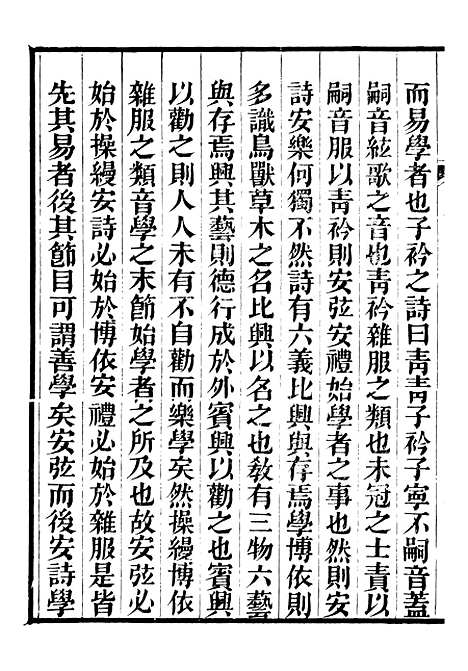 而易學者也子衿之詩曰靑靑子衿子寧不嗣音蓋
嗣音絃歌之音也靑衿雜服之類也未冠之士責以
嗣音服以靑衿則安弦安禮始學者之事也然則安
詩安樂何獨不然詩有六義比興與存焉學博依則
多識鳥獸草木之名比興以名之也敎有三物六藝
與存焉興其藝則德行成於外賓興以勸之也賓興
以勸之則人人未有不自勸而樂學矣然操縵博依
雜服之類音學之末節始學者之所及也故安弦必
始於操縵安詩必始於博依安禮必始於雜服是皆
先其易者後其節目可謂善學矣安弦而後安詩學